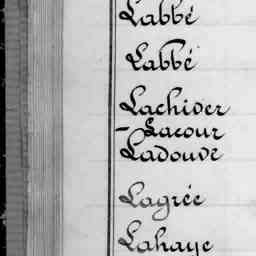 Labbé
Labbé
Lachiver
- Lacour
Ladouve
Lagrée
Lahaye